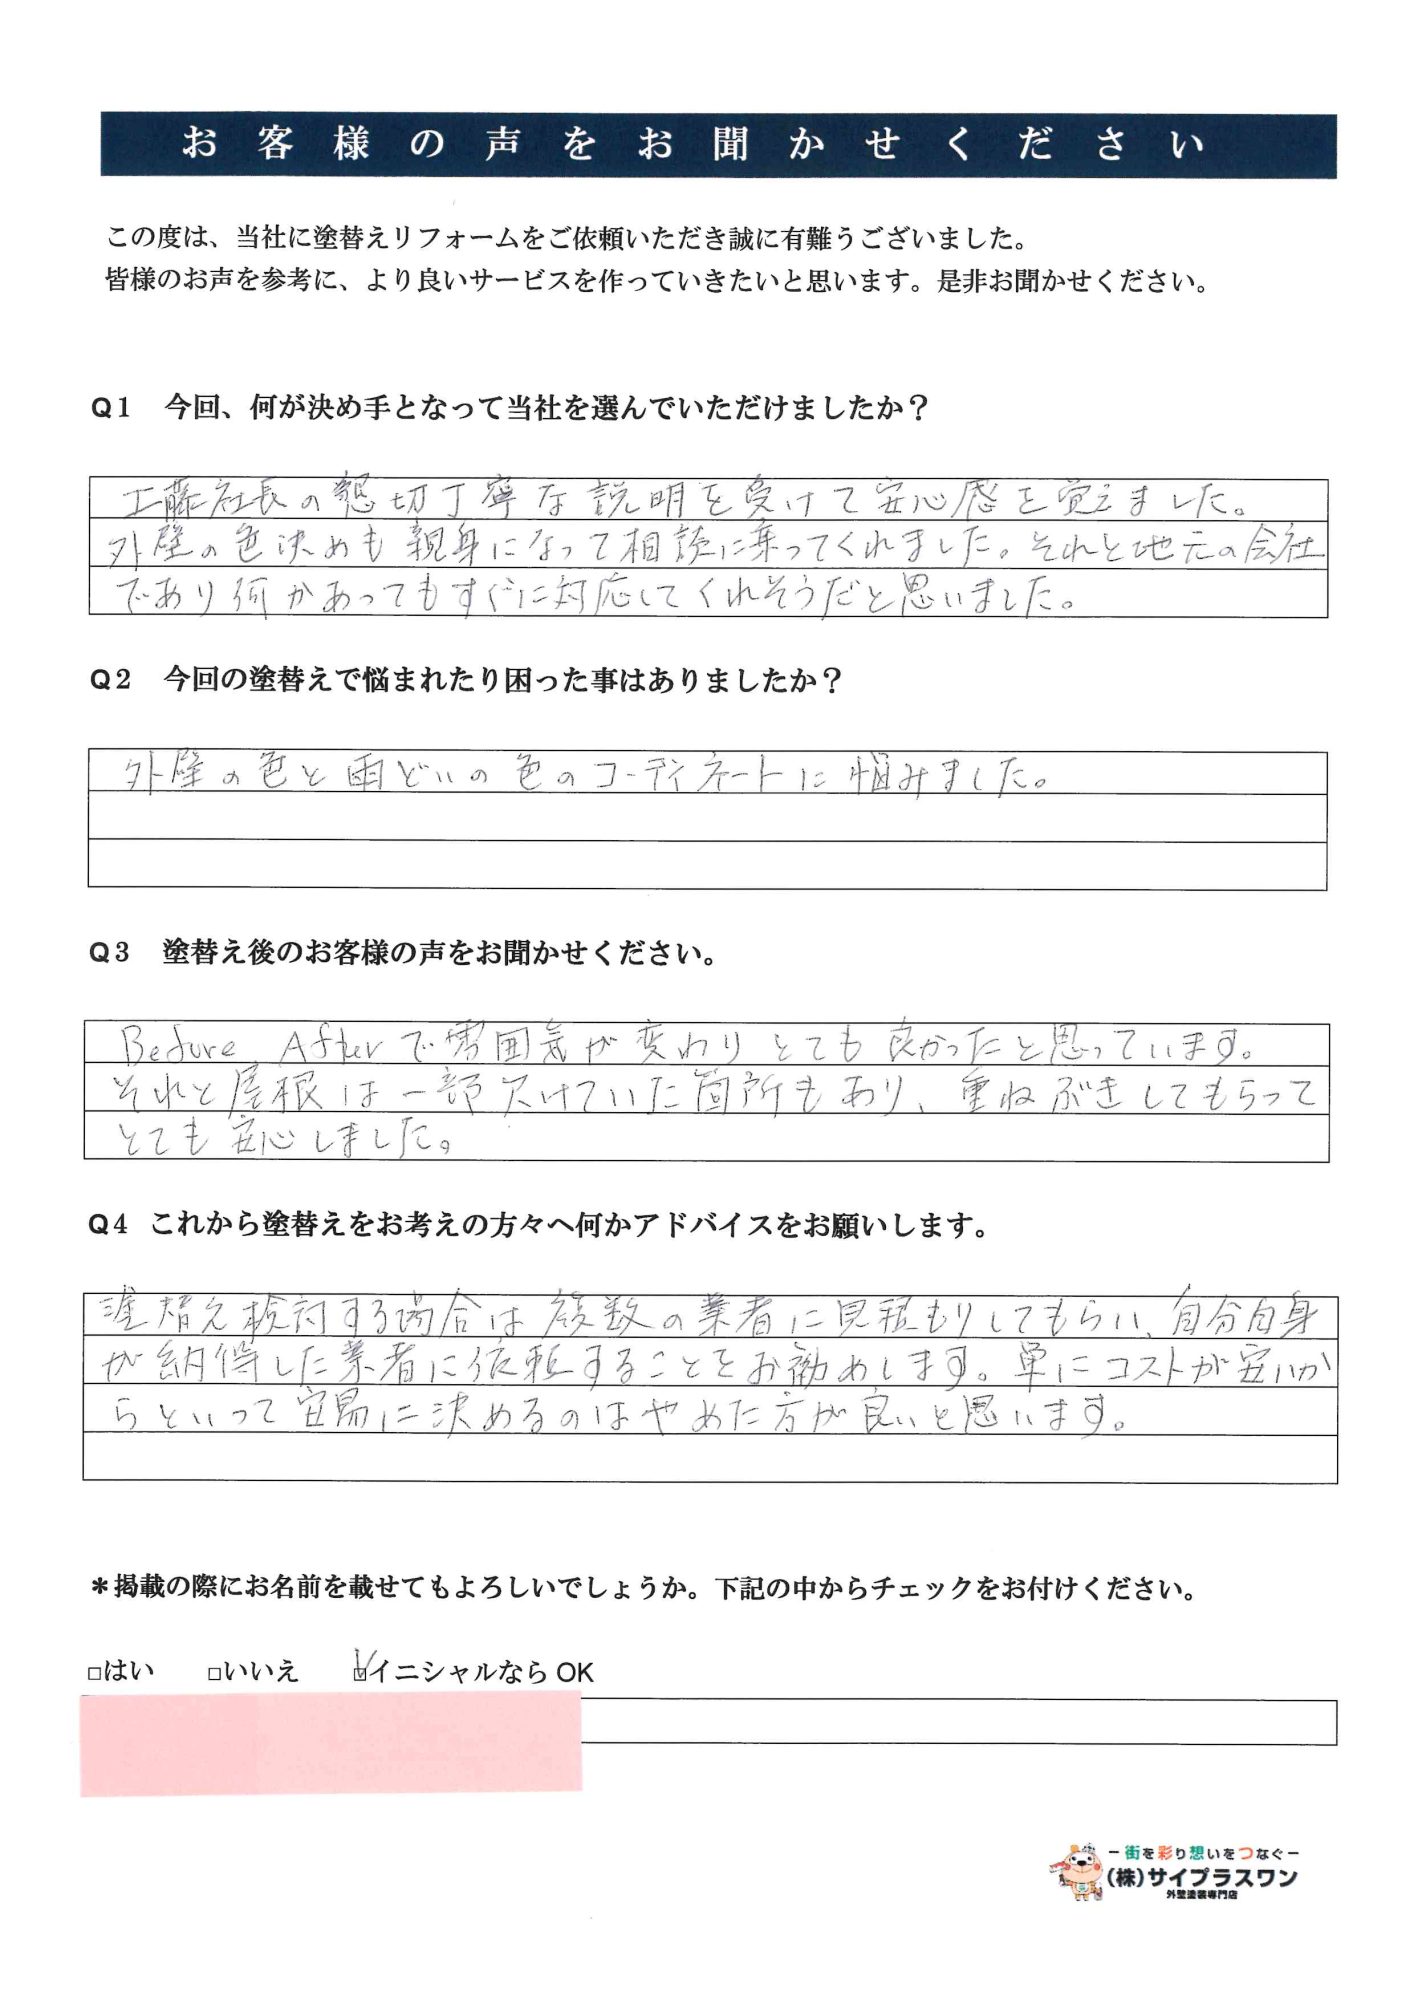 お客様の声をお聞かせください
この度は、当社に塗替えリフォームをご依頼いただき誠に有難うございました。
皆様のお声を参考に、より良いサービスを作っていきたいと思います。是非お聞かせください。
Q1 今回、何が決め手となって当社を選んでいただけましたか？
工藤社長の懇切丁寧な説明を受けて安心感を覚えました。
外壁の色決めも親身になって相談に乗ってくれました。それと地元の会社
であり何かあってもすぐに対応してくれそうだと思いました。
Q2 今回の塗替えで悩まれたり困った事はありましたか？
外壁の色と雨どいの色のコーディネートに悩みました。
Q3 塗替え後のお客様の声をお聞かせください。
Before, Afterで雰囲気が変わりとても良かったと思っています。
それと屋根は一部欠けていた箇所もあり、重ねぶきしてもらって
とても安心しました。
Q4 これから塗替えをお考えの方々へ何かアドバイスをお願いします。
塗替え検討する場合は複数の業者に見積もりしてもらい、自分自身
が納得した業者に依頼することをお勧めします。単にコストが安いか
らといって安易に決めるのはやめた方が良いと思います。
＊掲載の際にお名前を載せてもよろしいでしょうか。下記の中からチェックをお付けください。
□はい □いいえ ☑イニシャルなら OK
ー街を彩り想いをつなぐー
(株)サイプラスワン
外壁塗装専門店